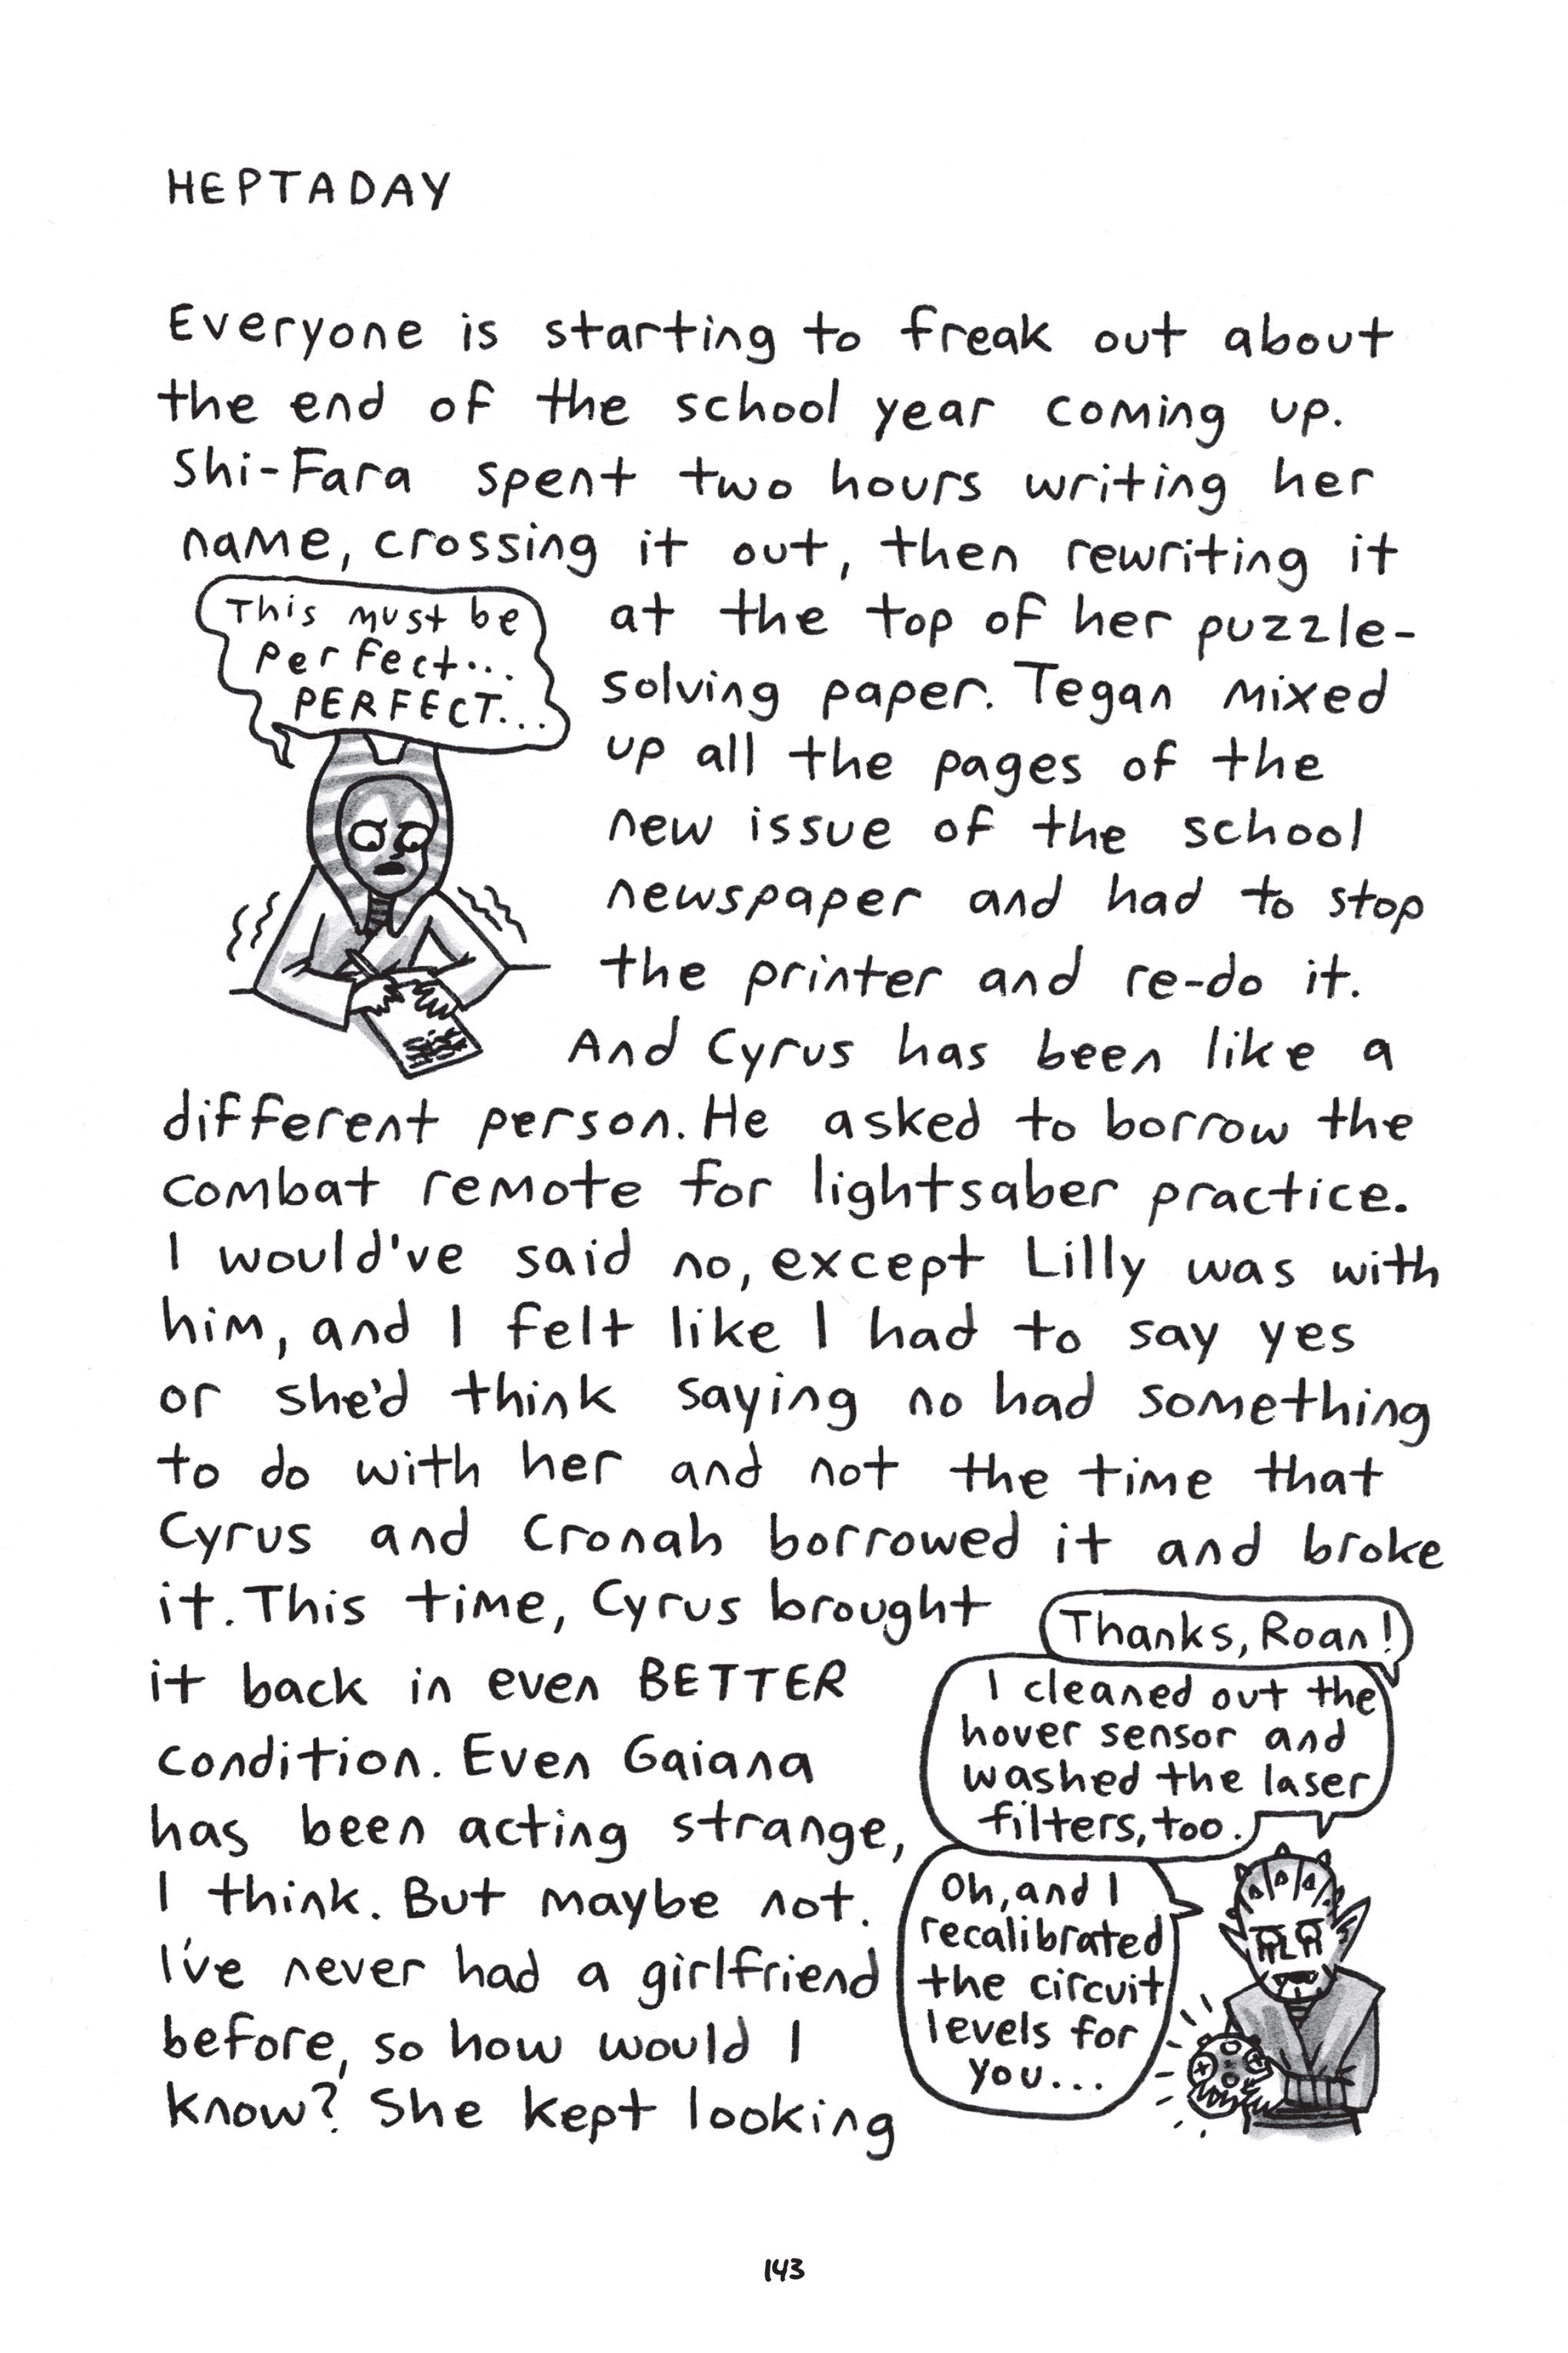 HEPTADAY
Everyone is starting to freak out about
the end of the school year coming up.
Shi-Fara spent two hours writing her
name, crossing it out, then rewriting it
This must be
perfect...
PERFECT...
at the top of her puzzle-
solving paper. Tegan mixed
up all the pages of the
new issue of the school
newspaper and had to stop
the printer and re-do it.
And Cyrus has been like a
different person. He asked to borrow the
combat remote for lightsaber practice.
I would've said no, except Lilly was with
him, and I felt like I had to say yes
or she'd think saying no had something
to do with her and not the time that
Cyrus and Cronah borrowed it and broke
it. This time, Cyrus brought
it back in even BETTER
condition. Even Gaiana
has been acting strange,
I think. But maybe not.
I've never had a girlfriend
before, so how would I
know? She kept looking
Thanks, Roan!
I cleaned out the
hover sensor and
washed the laser
filters, too.
Oh, and I
recalibrated
the circuit
levels for
you...
143